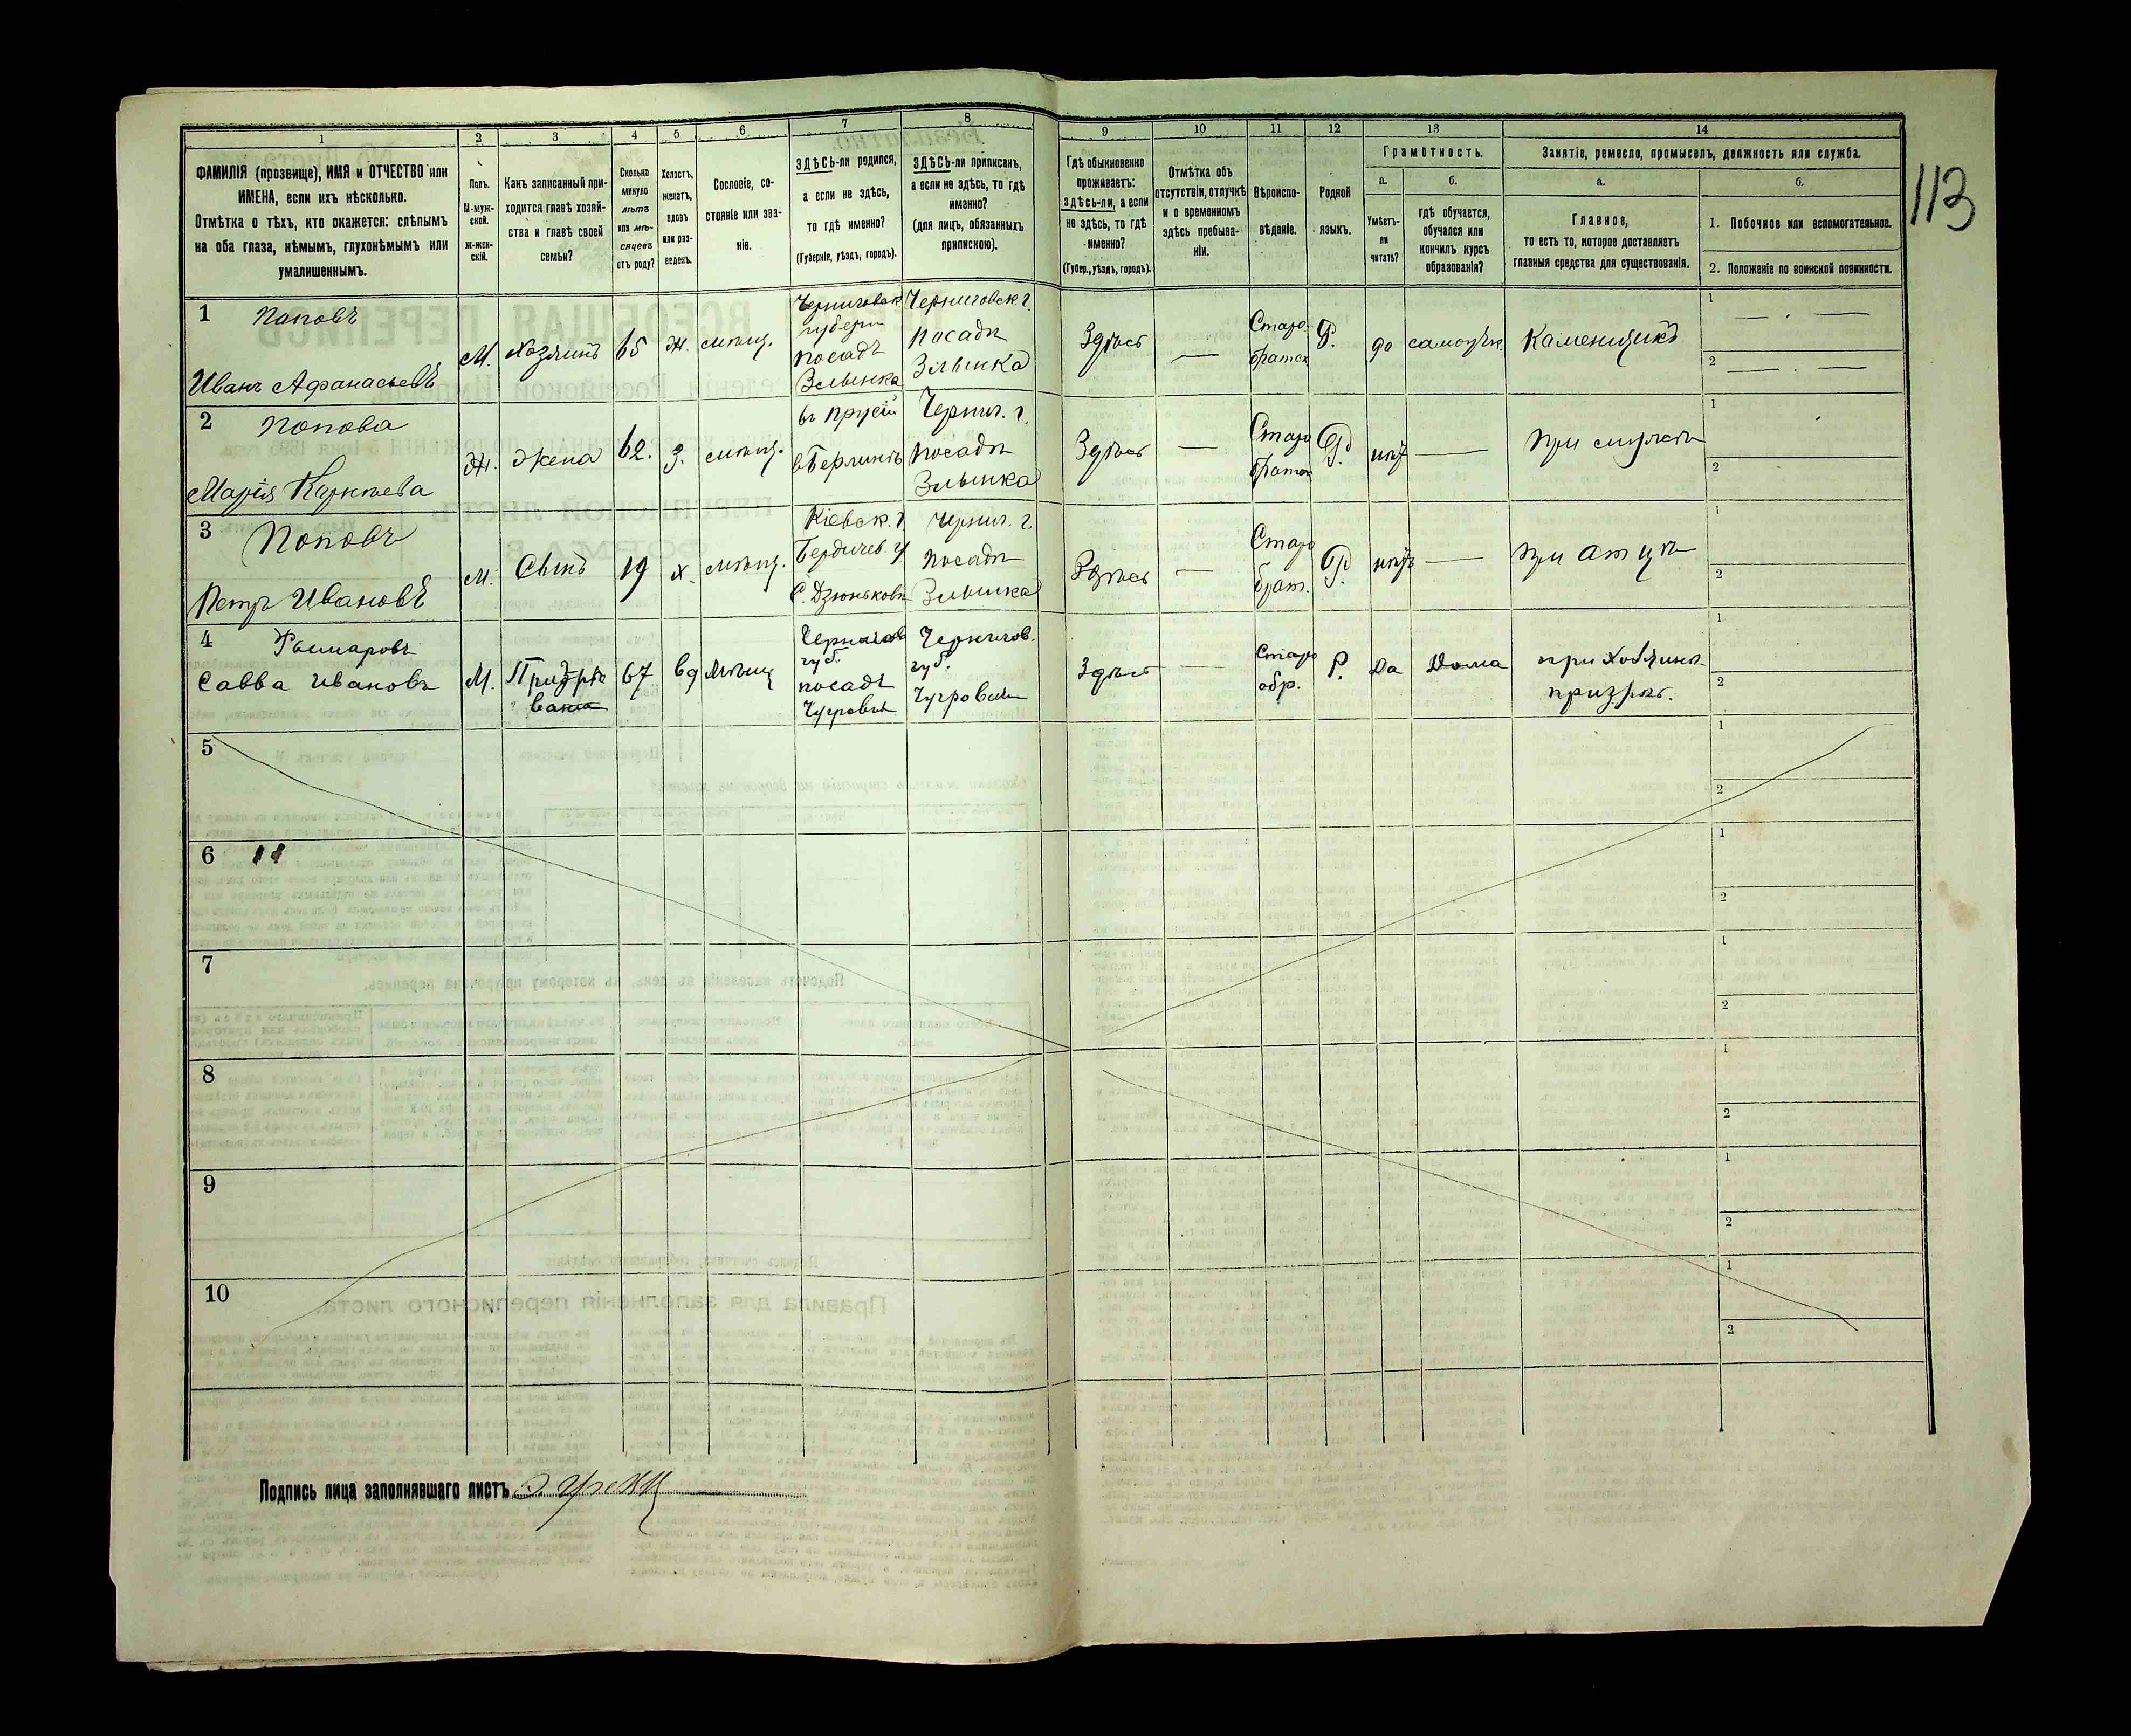 113
1 2 3 4 5 6 7 8 9 10 11 12 13 14
ФАМИЛІЯ (прозвище), ИМЯ и ОТЧЕСТВО или
ИМЕНА, если ихъ нѣсколько.
Отмѣтка о тѣхъ, кто окажется: слѣпымъ
на оба глаза, нѣмымъ, глухонѣмымъ или
умалишеннымъ.
Полъ.
М-муж-
ской.
Ж-жен-
скій.
Какъ записанный при-
ходится главѣ хозяй-
ства и главѣ своей
семьи?
Сколько
минуло
лѣтъ
или мѣ-
сяцевъ
отъ роду?
Холостъ,
женатъ,
вдовъ
или раз-
веденъ.
Сословіе, со-
стояніе или зва-
ніе.
ЗДѢСЬ-ли родился,
а если не здѣсь,
то гдѣ именно?
(Губернія, уѣздъ, городъ).
ЗДѢСЬ-ли приписанъ,
а если не здѣсь, то гдѣ
именно?
(для лицъ, обязанныхъ
припискою).
Гдѣ обыкновенно
проживаетъ:
здѣсь-ли, а если
не здѣсь, то гдѣ
именно?
(Губер., уѣздъ, городъ).
Отмѣтка объ
отсутствіи, отлучкѣ
и о временномъ
здѣсь пребыва-
ніи.
Вѣроиспо-
вѣданіе.
Родной
языкъ.
Грамотность.
а.
Умѣетъ-
ли
читать?
б.
гдѣ обучается,
обучался или
кончилъ курсъ
образованія?
Занятіе, ремесло, промыселъ, должность или служба.
а.
Главное,
то есть то, которое доставляетъ
главныя средства для существованія.
б.
1. Побочное или вспомогательное.
2. Положеніе по воинской повинности.
1 Поповъ
Иванъ Афанасьевъ
М. Хозяинъ 65 Ж. мѣщ.
Черниговск
губерн
посадъ
Злынка
Черниговск. г.
посадъ
Злынка
Здѣсь —
Старо
братск
Р. да самоучк. Каменщикъ
1 — . —
2 — . —
2 Попова
Марія Карпѣева
Ж. Жена 62. З. мѣщ.
въ Прусіи
в Берлинъ
Чернич. г.
посадъ
Злынка
Здѣсь —
Старо
братск
Р. нѣт —
1
2
3 Поповъ
Петръ Ивановъ
М. Сынъ 19 х. мѣщ.
Кіевск. г
Бердичев. у
С. Дзюньковъ
Черниг. г.
посадъ
Злынка
Здѣсь —
Старо
брат.
Р. нѣтъ — при атцѣ
1
2
4
Савва Ивановъ
М. Призрѣ
67 вд Мѣщ
Чернигов
губ.
посадъ
Чернигов.
губ.
Здѣсь —
Старо
обр.
Р. Да Дома при Хозяинѣ
призрѣв.
1
2
5
1
2
6
1
2
7
1
2
8
1
2
9
1
2
10
1
2
Подпись лица заполнявшаго листъ